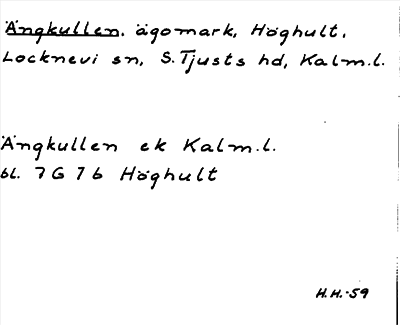 Ängkullen, ägomark, Höghult,
Locknevi sn, S. Tjusts hd, Kalm.l.
Ängkullen ek Kalm.l.
bl. 7 G 7 b Höghult
H.H.-59